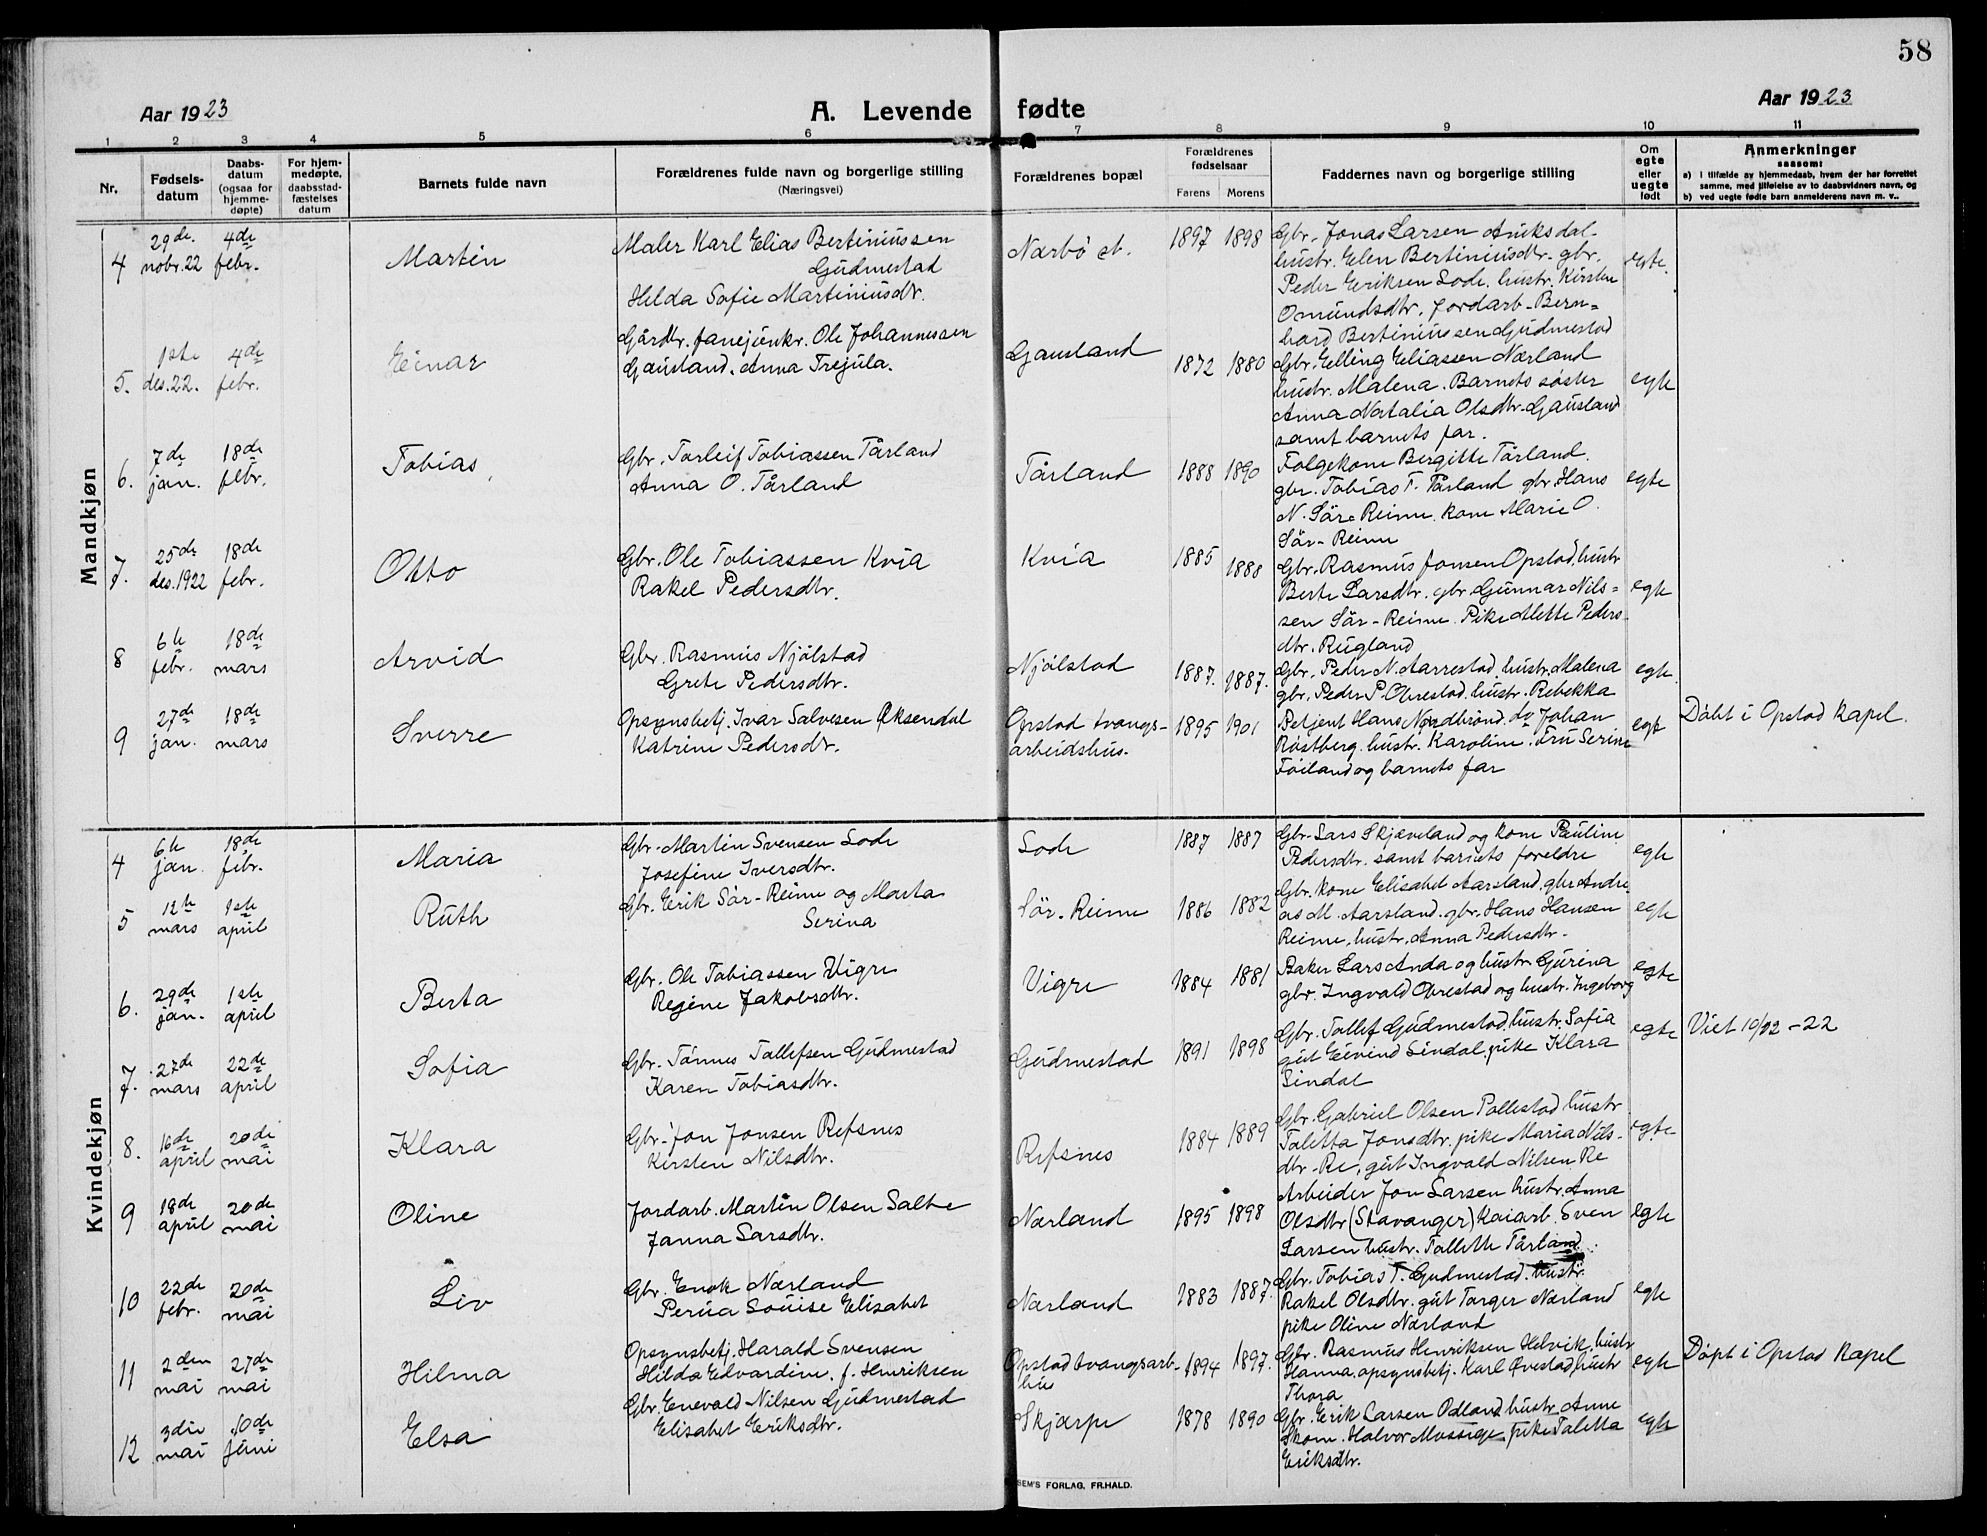 58
Aar 1923
A. Levende fødte
Aar 1923
1 2 3 4 5 6 7 8 9 10 11
Nr.
Fødsels-
datum
Daabs-
datum
(ogsaa for
hjemme-
døpte)
For hjem-
medøpte,
daabsstad-
fæstelses
datum
Barnets fulde navn
Forældrenes fulde navn og borgerlige stilling
(Næringsvei)
Forældrenes bopæl
Forældrenes
fødselsaar
Farens Morens
Faddernes navn og borgerlige stilling
Om
egte
eller
uegte
født
Anmerkninger
saasom:
a) I tilfælde av hjemmedaab, hvem der har forrettet
samme, med tilføielse av to daabsvidners navn, og
b) ved uegte fødte barn anmelderens navn m. v..
Mandkjøn
4
29de
nobr.22
4de
febr.
Martin
Maler Karl Elias Bertiniussen
Gudmestad
Hilda Sofie Martiniusdtr.
Nærbö st.
1897 1898
Gbr. Jonas Larsen Auksdal.
hustr. Elen Bertiniusdtr. gbr.
Peder Eriksen Lode. hustr. Kirsten
Omundsdtr. Jordarb. Bern=
hard Bertiniussen Gudmestad
egte.
5.
1ste
des.22.
4de
febr.
Einar
Gårdbr. fanejunkr. Ole Johannessen
Gausland. Anna Trejula.
Gausland
1872 1880
Gbr. Elling Eliassen Nærland
hustr. Malena. Barnets søster
Anna Natalia Olsdtr. Gausland
samt barnets far.
egte
6.
7de
jan.
18de
febr.
Tobias
Gbr. Torleif Tobiassen Tårland
Anna O. Tårland
Tårland
1888 1890
Folgekone Bergitte Tårland.
gbr. Tobias T. Tårland gbr. Hans
N. Sör-Reime. kone Marie O.
Sör-Reime
egte
7.
25de
des.1922
18de
febr.
Otto
Gbr. Ole Tobiassen Kvia
Rakel Pedersdtr.
Kvia
1885 1888
Gbr. Rasmus Jonsen Opstad, hustr
Berte Larsdtr. gbr. Gunnar Nils=
sen Sör-Reime. Pike Alette Peders-
dtr. Rugland
egte
8
6te
febr.
18de
mars
Arvid
Gbr. Rasmus Njölstad
Grete Pedersdtr.
Njölstad
1887. 1887.
Gbr. Peder N. Aarrestad. hustr. Malena
gbr. Peder P. Obrestad. hustr. Rebekka
egte.
9
27de
jan.
18de
mars
Sverre
Opsynsbetj. Ivar Salvesen Øksendal
Katrine Pedersdtr.
Opstad tvangs-
arbeidshus.
1895 1901
Betjent Hans Nordbrönd. do Johan
Røstberg. hustr. Karoline. Fru Serine
Töiland og barnets far
egte
Döbt i Opstad Kapel.
Kvindekjøn
4
6te
jan.
18de
febr.
Maria
Gbr. Martin Svensen Lode
Josefine Iversdtr.
Lode
1887 1887
Gbr. Lars Skjæveland og kone Pauline
Pedersdtr. samt barnets foreldre
egte
5
12te
mars
1ste
april
Ruth
Gbr. Erik Sör-Reime og Marta
Serina
Sör-Reime
1886 1882
Gbr. kone Elisabet Aarsland, gbr Andre
as M. Aarsland. gbr. Hans Hansen
Reime, hustr. Anna Pedersdtr.
egte
6.
29de
jan.
1ste
april
Berta
Gbr. Ole Tobiassen Vigre
Regine Jakobsdtr.
Vigre
1884 1881
Baker Lars Anda og hustr. Gurina
gbr. Ingvald Obrestad og hustr. Ingeborg
egte
7.
27de
mars
22de
april
Sofia
Gbr. Tönnes Tollefsen Gudmestad
Karen Tobiasdtr.
Gudmestad
1891 1898
Gbr. Tollef Gudmestad, hustr. Sofia
gut Eivind Sindal, pike Klara
Sindal
egte
Viet 10/12-22
8.
16de
april
20de
mai
Klara
Gbr. Jon Jonsen Refsnes
Kirsten Nilsdtr.
Refsnes
1884 1889
Gbr. Gabriel Olsen Pollestad hustr.
Taletta Jonsdtr. pike Maria Nils-
dtr. Re, gut Ingvald Nilsen Re
egte
9
18de
april
20de
mai
Oline
Jordarb. Martin Olsen Salte
Janna Larsdtr.
Nærland
1895 1898
Arbeider Jon Larsen hustr. Anna
Olsdtr (Stavanger) Kaiarb. Sven
Larsen hustr. Tollette Tårland
egte
10
22de
febr.
20de
mai
Liv
Gbr. Enok Nærland
Perua Louise Elisabet
Nærland
1883 1887.
Gbr. Tobias T. Gudmestad. hustr.
Rakel Olsdtr. gut Torger Nærland
pike Oline Nærland
egte
11
2den
mai
27de
mai
Hilma
Opsynsbetj. Harald Svensen
Hilda Edvardine. f. Henriksen
Opstad tvangsarb-
hus
1894 1897.
Gbr. Rasmus Henriksen Helvik. hustr
Hanna. opsynsbetj. Karl Øvestad, hustr
Thora
egte
Døpt i Opstad Kapel
12
3die
mai
10de
juni
Elsa
Gbr. Enevald Nilsen Gudmestad
Elisabet Eriksdtr.
Skjærpe
1878 1890
Gbr. Erik Larsen Ødland hustr. Anne
Skom. Halvor Mossige, pike Taletta
Eriksdtr.
egte
SEM'S FORLAG, FR.HALD.